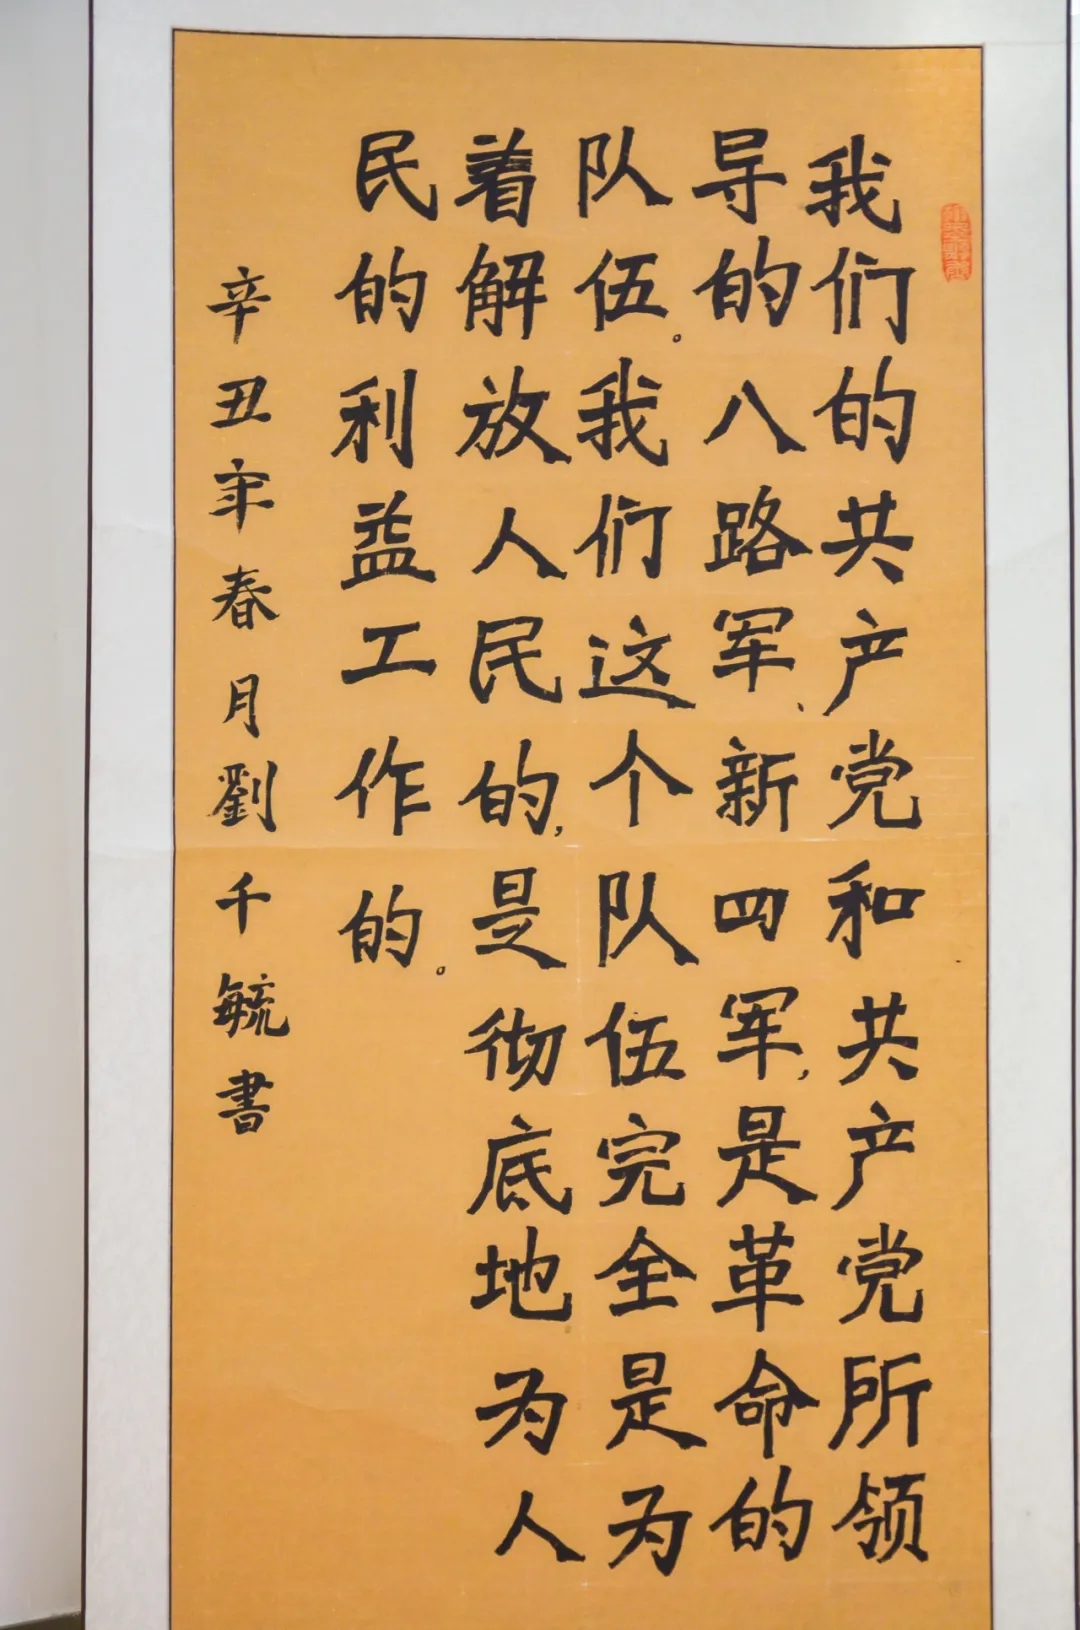 我们的共产党和共产党所领
导的八路军、新四军,是革命的
队伍。我们这个队伍完全是为
着解放人民的,是彻底地为人
民的利益工作的。
辛丑年春月劉千毓書